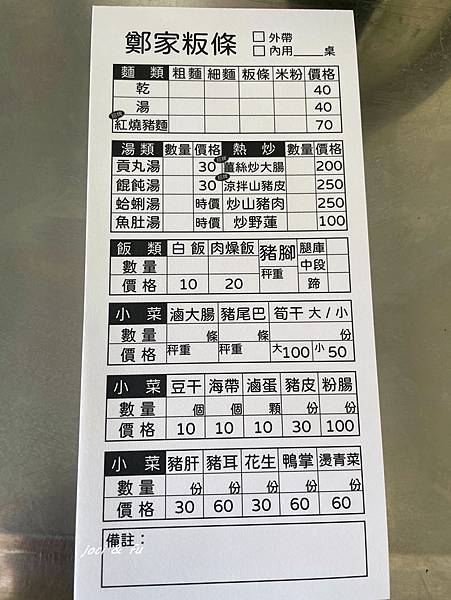 鄭家粄條 □外帶
□內用____桌
麵類 粗麵 細麵 粄條 米粉 價格
乾 40
湯 40
紅燒豬麵 70
湯類 數量 價格 熱炒 數量 價格
貢丸湯 30 薑絲炒大腸 200
餛飩湯 30 涼拌山豬皮 250
蛤蜊湯 時價 炒山豬肉 250
魚肚湯 時價 炒野蓮 100
飯類 白飯 肉燥飯 豬腳 腿庫
數量 秤重 中段
價格 10 20 蹄
小菜 滷大腸 豬尾巴 筍干 大/小
數量 條 條 份
價格 秤重 秤重 大100 小50
小菜 豆干 海帶 滷蛋 豬皮 粉腸
數量 個 個 顆 份 份
價格 10 10 10 30 100
小菜 豬肝 豬耳 花生 鴨掌 燙青菜
數量 份 份 份 份 份
價格 30 60 30 60 60
備註：
joci & fu